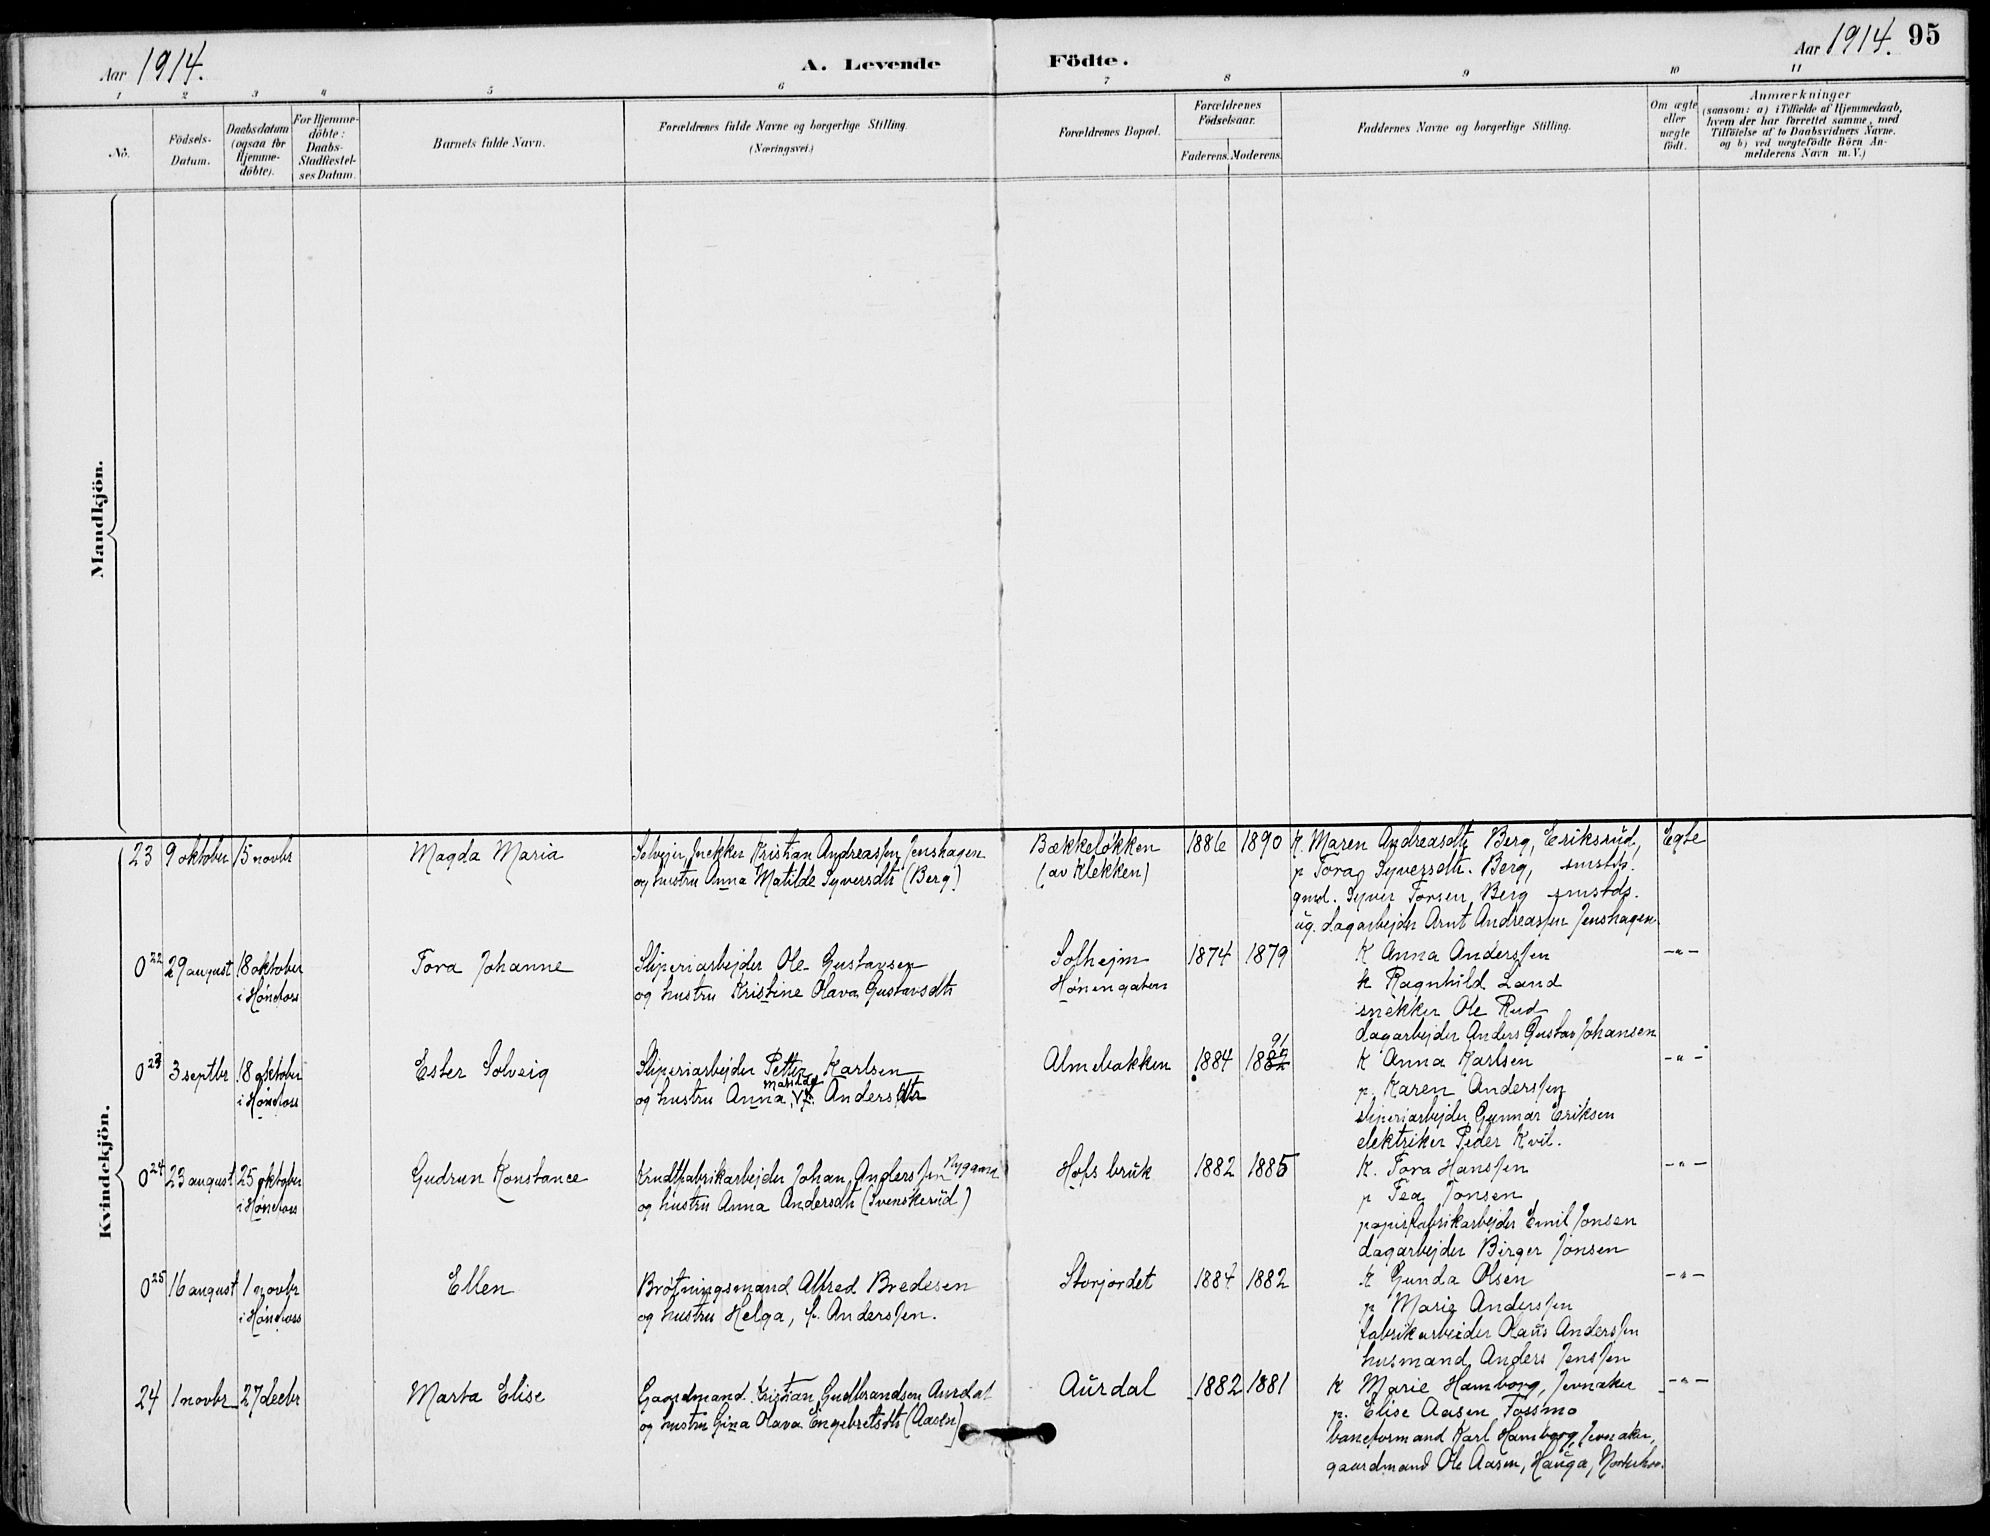 Aar 1914.
A. Levende Födte.
Aar 1914. 95
1 2 3 4 5 6 7 8 9 10 11
No.
Födsels-
Datum.
Daabsdatum
(ogsaa for
Hjemme-
döbte).
For Hjemme-
döbte:
Daabs-
Stadfæstel-
ses Datum.
Barnets fulde Navn.
Forældrenes fulde Navne og borgerlige Stilling.
(Næringsvei.)
Forældrenes Bopæl.
Forældrenes
Födselsaar.
Faderens. Moderens.
Faddernes Navne og borgerlige Stilling.
Om ægte
eller
uægte
födt.
Anmærkninger
(saasom: a) i Tilfælde af Hjemmedaab,
hvem der har forrettet samme, med
Tilföielse af to Daabsvidners Navne.
og b) ved uægtefödte Börn An-
melderens Navn m. V.)
Mandkjön.
Kvindekjön.
23 9 oktober 15 novbr
Magda Maria
Selveier, snekker Kristian Andreassen Jenshagen
og hustru Anna Matilde Syversdtr (Berg)
Bækkeløkken
(av Klekken)
1886 1890
K. Maren Andreasdtr Berg, Eriksrud,
p Tora Syversdtr. Berg,
gmd. Syver Torsen Berg
ug. dagarbejder Arnt Andreassen Jenshagen.
Egte
0 22 29 august 18 oktober
i Hønefoss
Tora Johanne
Sliperiarbejder Ole Gustavsen
og hustru Kristine Olava Gustavsdtr
Solhejm
Hønengaten
1874 1879
K Anna Anderssen
k Ragnhild Land
snekker Ole Rud
dagarbejder Anders Gustav Johansen
-"-
0 23 3 septbr 18 oktober
i Hønefoss
Ester Solveig
Sliperiarbejder Petter Karlsen
Matilde
og hustru Anna Andersdtr
Almebakken
1884 1882 91
K Anna Karlsen
p. Karen Anderssen
sliperiarbejder Gunnar Eriksen
elektriker Peder Kvil.
-"-
0 24 23 august 25 oktober
i Hønefoss
Gudrun Konstance
Krudtfabrikarbejder Johan Anderssen Nygaard
og hustru Anna Andersdtr (Svenskerud)
Hofs bruk
1882 1885
K. Tora Hanssen
p Tea Jonsen
papirfabrikarbejder Emil Jonsen
dagarbejder Birger Jonsen
-"-
0 25 16 august 1 novbr
i Hønefoss
Ellen
Brøtningsmand Alfred Bredesen
og hustru Helga, f. Anderssen.
Storjordet
1884 1882
K Gunda Olsen
p Marie Anderssen
fabrikarbeider Olaus Anderssen
husmand Anders Jenssen
-"-
24 1 novbr 27 decbr
Marta Elise
Gaardmand Kristian Gudbrandsen Aurdal
og hustru Gina Olava Engebretsdtr (Aasen)
Aurdal
1882 1881
K Marie Hamborg, Jevnaker
p. Elise Aasen Fossmo
baneformand Karl Hamborg, Jevnaker,
gaardmand Ole Aasen, Hauga, Norderhov.
-"-